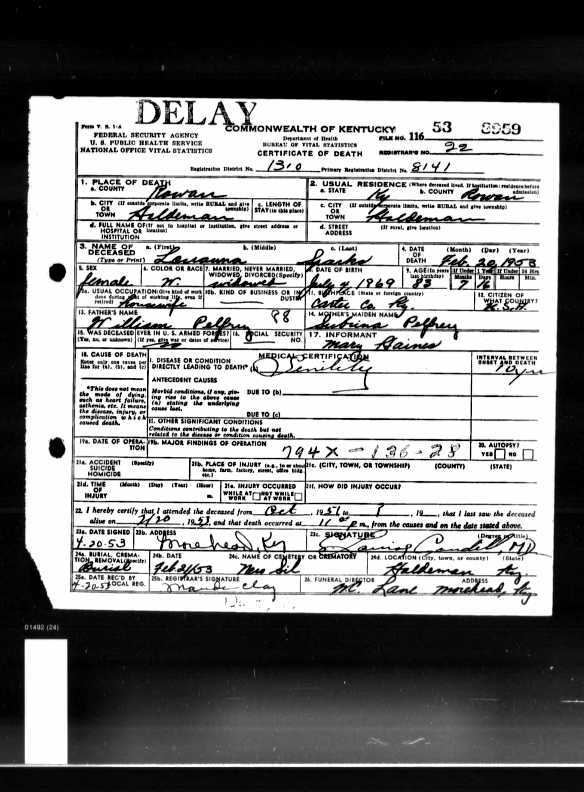 DELAY
Form V. S. 1-A
COMMONWEALTH OF KENTUCKY
FILE NO. 116 53 3959
FEDERAL SECURITY AGENCY
Department of Health
U. S. PUBLIC HEALTH SERVICE
BUREAU OF VITAL STATISTICS
REGISTRAR'S NO. 22
NATIONAL OFFICE VITAL STATISTICS
CERTIFICATE OF DEATH
Registration District No. 1310 Primary Registration District No. 8141
1. PLACE OF DEATH
a. COUNTY Rowan
2. USUAL RESIDENCE (Where deceased lived. If institution: residence before admission)
a. STATE Ky b. COUNTY Rowan
b. CITY (If outside corporate limits, write RURAL and give township)
OR
TOWN Haldeman
c. LENGTH OF
STAY (in this place)
c. CITY (If outside corporate limits, write RURAL and give township)
OR
TOWN Haldeman
d. FULL NAME OF (If not in hospital or institution, give street address or location)
HOSPITAL OR
INSTITUTION
d. STREET (If rural, give location)
ADDRESS
3. NAME OF a. (First) b. (Middle) c. (Last)
DECEASED
(Type or Print) Louanna Sparks
4. DATE (Month) (Day) (Year)
OF
DEATH Feb. 20, 1953
5. SEX
female
6. COLOR OR RACE
W.
7. MARRIED, NEVER MARRIED,
WIDOWED, DIVORCED (Specify)
widowed
8. DATE OF BIRTH
July 4 1869
9. AGE (In years last birthday) If Under 1 Year If Under 24 Hrs
Months Days Hours Min.
83 7 16
10a. USUAL OCCUPATION (Give kind of work done during most of working life, even if retired)
Housewife
10b. KIND OF BUSINESS OR INDUSTRY
11. BIRTHPLACE (State or foreign country)
Carter Co. Ky
12. CITIZEN OF
WHAT COUNTRY?
U.S.A.
13. FATHER'S NAME
William Pelfrey
98
14. MOTHER'S MAIDEN NAME
Pelfrey
15. WAS DECEASED EVER IN U. S. ARMED FORCES?
(Yes, no, or unknown) (If yes, give war or dates of service)
16. SOCIAL SECURITY
NO.
17. INFORMANT
Mary Gaines
18. CAUSE OF DEATH
Enter only one cause per
line for (a), (b), and (c)
MEDICAL CERTIFICATION
INTERVAL BETWEEN
ONSET AND DEATH
I. DISEASE OR CONDITION
DIRECTLY LEADING TO DEATH* (a) Senility
10 yrs
*This does not mean
the mode of dying,
such as heart failure,
asthenia, etc. It means
the disease, injury, or
complication which
caused death.
ANTECEDENT CAUSES
Morbid conditions, if any, giving
rise to the above cause
(a) stating the underlying
cause last.
DUE TO (b)
DUE TO (c)
II. OTHER SIGNIFICANT CONDITIONS
Conditions contributing to the death but not
related to the disease or condition causing death.
19a. DATE OF OPERATION
19b. MAJOR FINDINGS OF OPERATION
794X - 136-28
20. AUTOPSY?
YES NO
21a. ACCIDENT (Specify)
SUICIDE
HOMICIDE
21b. PLACE OF INJURY (e.g., in or about home, farm, factory, street, office bldg. etc.)
21c. (CITY, TOWN, OR TOWNSHIP) (COUNTY) (STATE)
21d. TIME (Month) (Day) (Year) (Hour)
OF
INJURY m.
21e. INJURY OCCURRED
WHILE AT WORK NOT WHILE AT WORK
21f. HOW DID INJURY OCCUR?
22. I hereby certify that I attended the deceased from Oct, 1951 to ?, 19, that I last saw the deceased
alive on 2/20, 1953, and that death occurred at 11 p m., from the causes and on the date stated above.
23a. DATE SIGNED
4-20-53
23b. ADDRESS
Morehead Ky
23c. SIGNATURE (Degree or title)
24a. BURIAL, CREMATION, REMOVAL (Specify)
Burial
24b. DATE
Feb 21/53
24c. NAME OF CEMETERY OR CREMATORY
24d. LOCATION (City, town, or county) (State)
Haldeman Ky
25a. DATE REC'D BY
LOCAL REG.
4-20-53
25b. REGISTRAR'S SIGNATURE
Maude Clay
26. FUNERAL DIRECTOR ADDRESS
Lane Morehead, Ky
01492 (24)